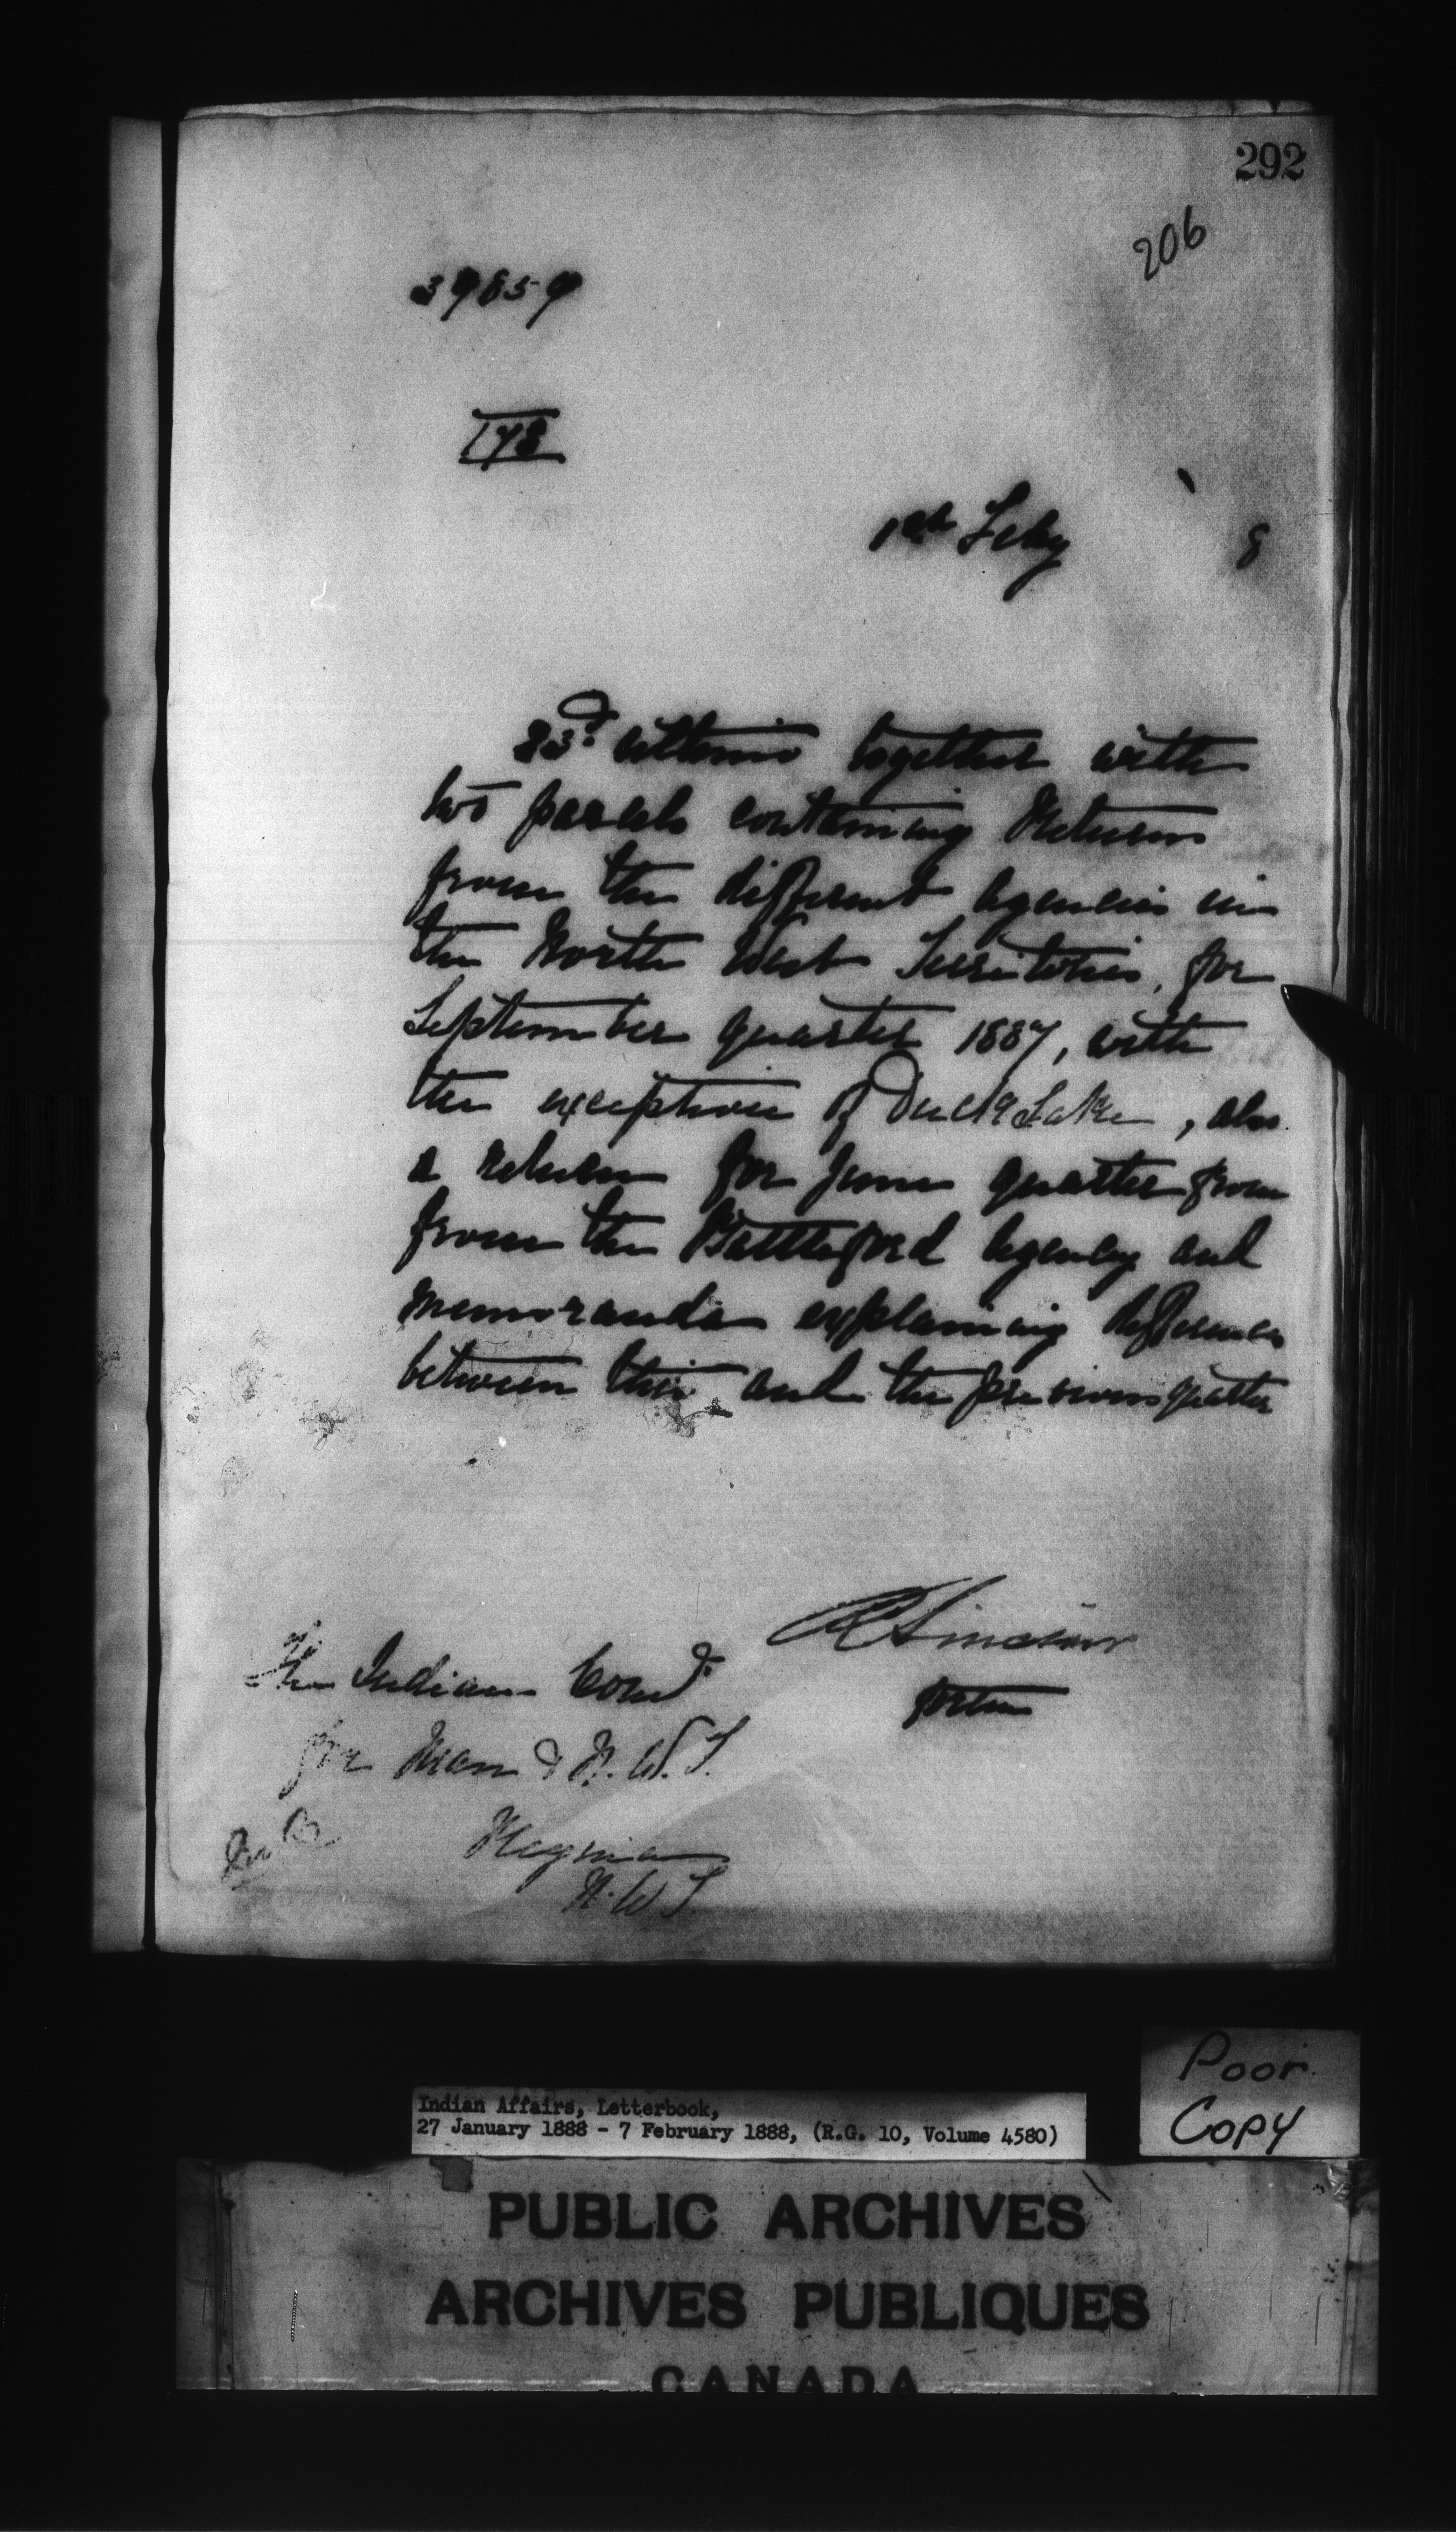 292
206
39859
178
1st Feby 8
23d ultimo together with
two parcels containing Returns
from the different Agencies in
the North West Territories, for
September quarter 1887, with
the exception of Duck Lake, also
a return for June quarter from
from the Battleford Agency and
memoranda explaining differences
between this and the previous quarter
R Sinclair
for the
The Indian Comr
for Man & N.W.T.
Regina
N.W.T
Poor
Copy
Indian Affairs, Letterbook,
27 January 1888 - 7 February 1888, (R.G. 10, Volume 4580)
PUBLIC ARCHIVES
ARCHIVES PUBLIQUES
CANADA